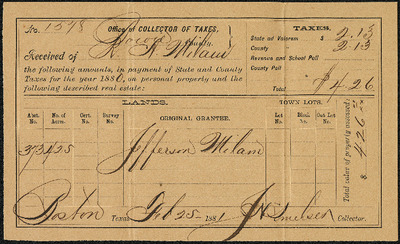 No. 1578 Office of COLLECTOR OF TAXES,
Bowie County.
Received of R. F. Milam
the following amounts, in payment of State and County
Taxes for the year 1880, on personal property and the
following described real estate:
TAXES.
State ad Valorem $ 2.13
County 2.13
Revenue and School Poll
County Poll
Total $4.26
LANDS.
TOWN LOTS.
Abst. No. No. of Acres. Cert. No. Survey No. ORIGINAL GRANTEE. Lot No. Block No. Out Lot No.
Total sales of property $ 426
373 425 Jefferson Milam
Boston Texas Feb 25 1881 Collector.